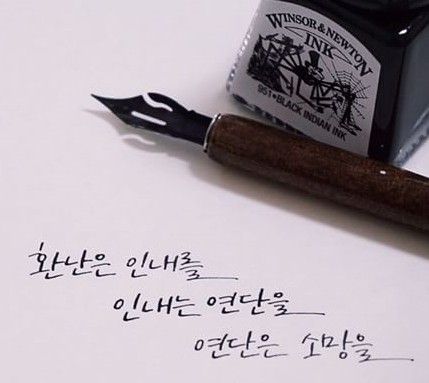 WINSOR & NEWTON
INK
951 • BLACK INDIAN INK
환난은 인내를
인내는 연단을
연단은 소망을